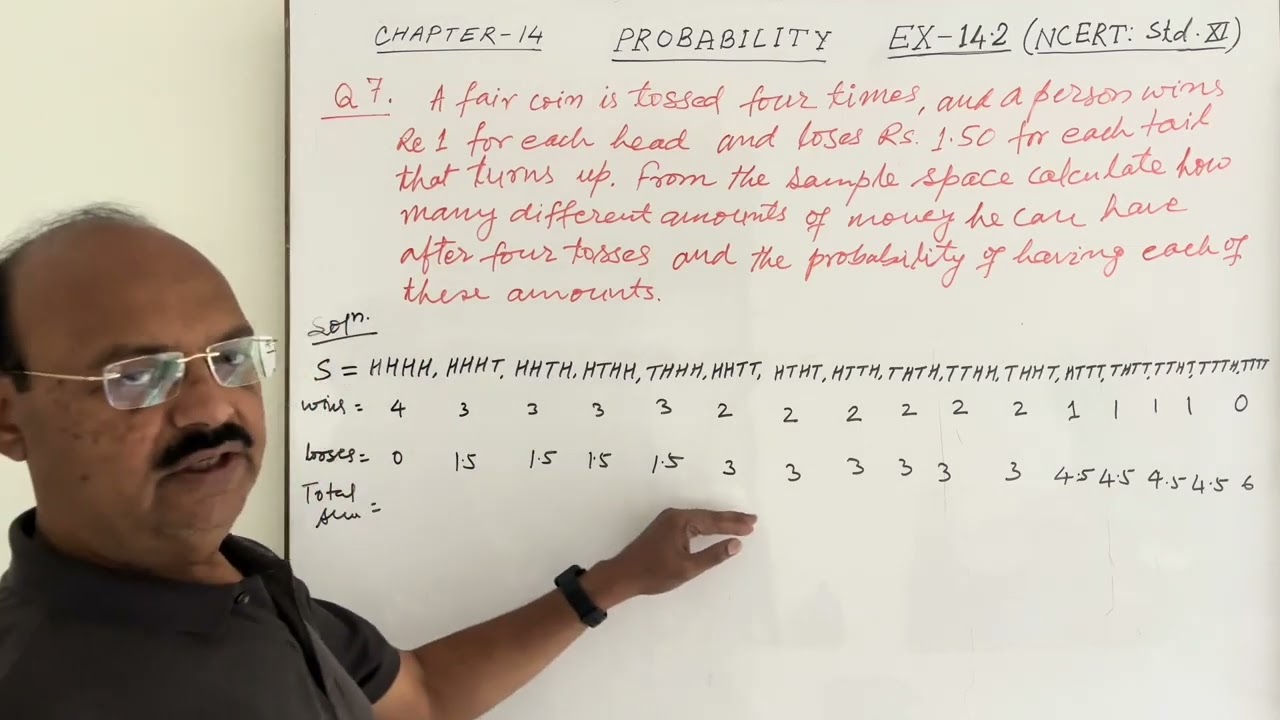 CHAPTER-14 PROBABILITY EX-14.2 (NCERT: Std. XI)
Q 7. A fair coin is tossed four times, and a person wins
Re 1 for each head and loses Rs. 1.50 for each tail
that turns up. From the sample space calculate how
many different amounts of money he can have
after four tosses and the probability of having each of
these amounts.
Soln.
S = HHHH, HHHT, HHTH, HTHH, THHH, HHTT, HTHT, HTTH, THTH, TTHH, THHT, HTTT, THTT, TTHT, TTTH, TTTT
wins = 4 3 3 3 3 2 2 2 2 2 2 1 1 1 1 0
looses = 0 1.5 1.5 1.5 1.5 3 3 3 3 3 3 4.5 4.5 4.5 4.5 6
Total
=